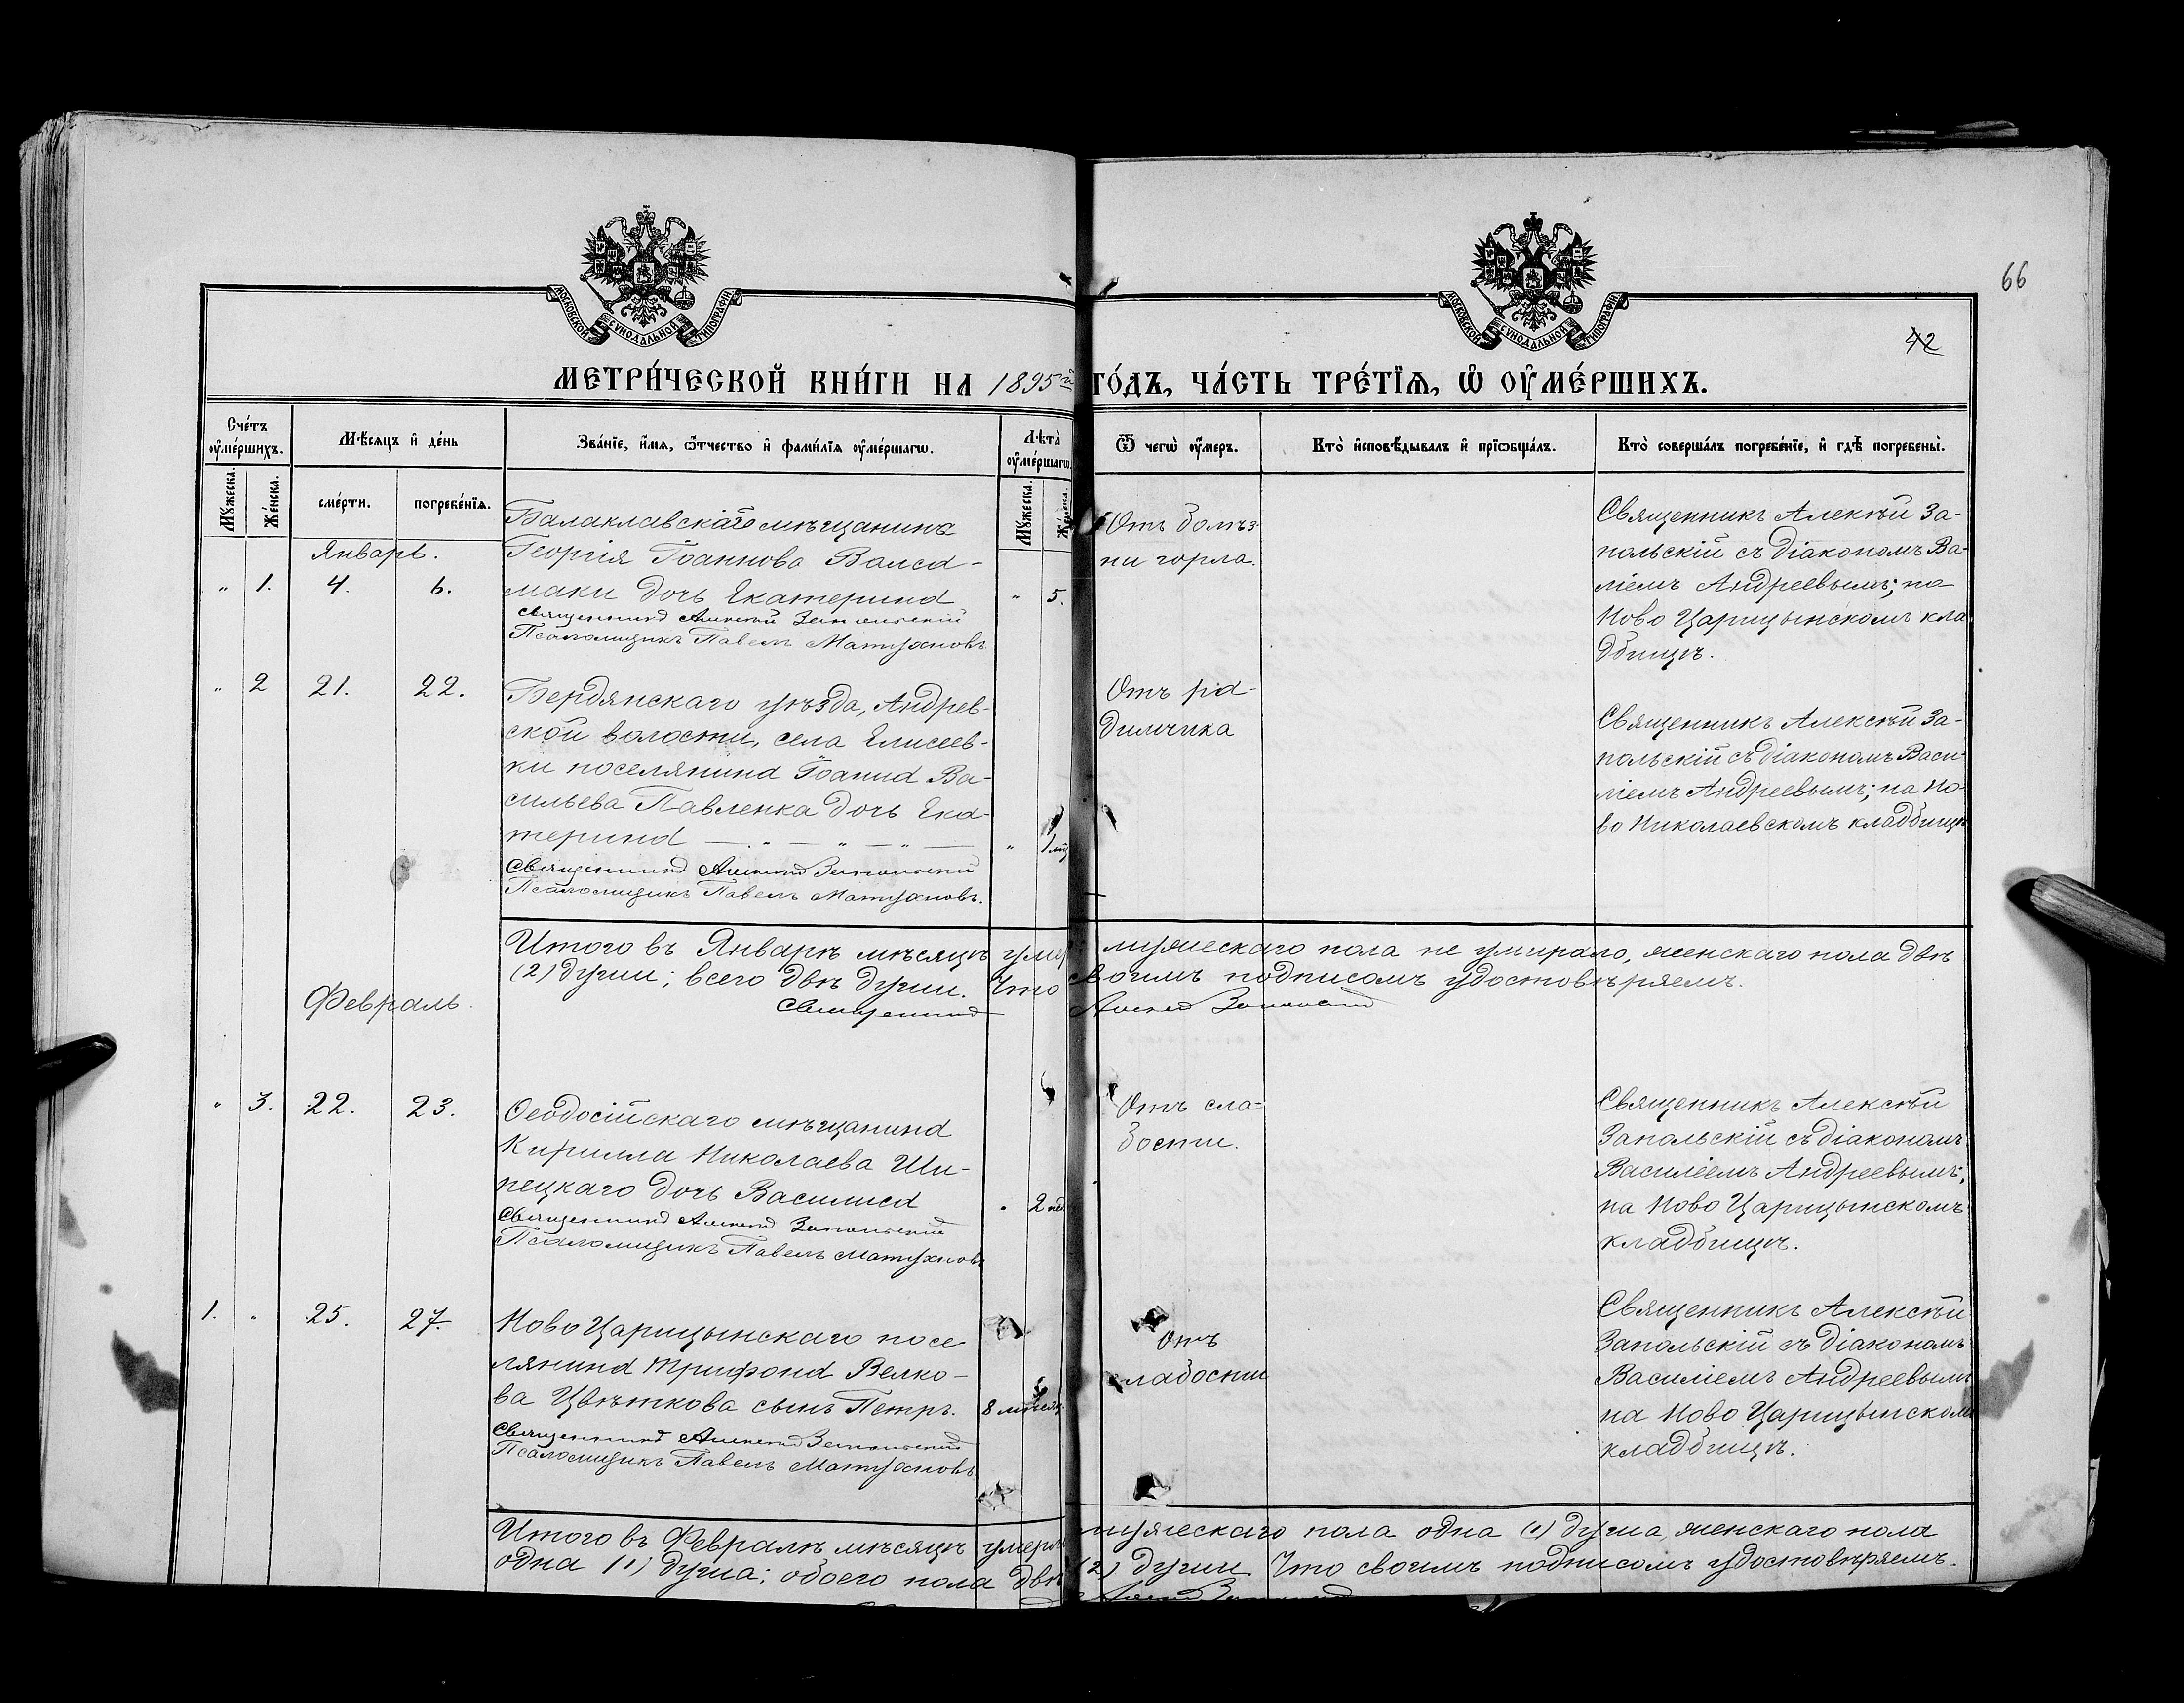 МОСКОВСКОЙ СУНОДАЛЬНОЙ ТИПОГРАФІИ
МОСКОВСКОЙ СУНОДАЛЬНОЙ ТИПОГРАФІИ
66
42
МЕТРИ́ЧЕСКОЙ КНИ́ГИ НА 1895й ГО́ДЪ, ЧА́СТЬ ТРЕ́ТЇѦ, Ѡ ОУ҆МЕ́РШИХЪ.
Сче́тъ оу҆ме́ршихъ.
Мѣ́сѧцъ и҆ де́нь
Зва́нїе, и҆́мѧ, ѻ҆́тчество и҆ фами́лїѧ оу҆ме́ршагѡ.
Лѣ́та оу҆ме́ршагѡ.
Ѿ чегѡ̀ оу҆́меръ.
Кто̀ и҆сповѣ́дывалъ и҆ прїѡбща́лъ.
Кто̀ соверша́лъ погребе́нїе, и҆ гдѣ̀ погребены̀.
Мꙋ́жеска.
Же́нска.
сме́рти.
погребе́нїѧ.
Мꙋ́жеска.
Же́нска.
Январь.
" 1. 4. 6.
Балаклавскаго мѣщанина
Георгія Іоаннова Валса-
маки дочь Екатерина
Священникъ Алексѣй Запольскій
Псаломщикъ Павелъ Матухновъ
" 5.
Отъ болѣз-
ни горла.
Священникъ Алексѣй За-
польскій съ діакономъ Ва-
ліемъ Андреевымъ; на
Ново Царицынскомъ кла
дбищѣ.
" 2 21. 22.
Бердянскаго уѣзда, Андрев-
ской волости, села Елисеев-
ки поселянина Іоанна Ва-
сильева Павленка дочь Ека-
терина — " — " — " —
Священникъ Алексѣй Запольскій
Псаломщикъ Павелъ Матухновъ.
" 1 мѣ
Отъ ро-
димчика
Священникъ Алексѣй За-
польскій съ діакономъ Васи-
ліемъ Андреевымъ; на Но-
во Николаевскомъ кладбищѣ
Итого въ Январѣ мѣсяцѣ умер мужескаго пола не умирало, женскаго пола двѣ
(2) души; всего двѣ души. Что своимъ подписомъ удостовѣряемъ.
Священникъ Алексѣй Запольскій
Февраль.
" 3. 22. 23.
Ѳеодосійскаго мѣщанина
Кирилла Николаева Ши-
пецкаго дочь Василиса
Священникъ Алексѣй Запольскій
Псаломщикъ Павелъ Матухновъ
" 2 нед
Отъ сла-
бости.
Священникъ Алексѣй
Запольскій съ діакономъ
Василіемъ Андреевымъ;
на Ново Царицынскомъ
кладбищѣ.
1. " 25. 27.
Ново Царицынскаго посе
лянина Трифона Велко-
ва Цвѣткова сынъ Петръ.
Священникъ Алексѣй Запольскій
Псаломщикъ Павелъ Матухновъ
8 мѣсяц
Отъ
слабости
Священникъ Алексѣй
Запольскій съ діакономъ
Василіемъ Андреевымъ
на Ново Царицынскомъ
кладбищѣ.
Итого въ Февралѣ мѣсяцѣ умерло мужескаго пола одна (1) душа, женскаго пола
одна (1) душа; обоего пола двѣ (2) души Что своимъ подписомъ удостовѣряемъ.